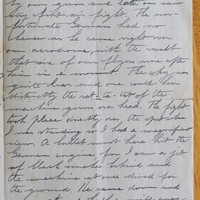 by our guns and later on saw
stiff fight. The un-
fortunate had no
chance as he came right over
our aerodrome, with the result
that six of our flyers were after
him in a moment. The sky was
quite clear and one could hear
distinctly the rat-a-tat of the
machine guns over head. The fight
took place directly over the spot where
I was standing so I had a magnificent
view. A bullet must have hit the
German engine for I saw a jet
of black smoke behind and
the machine at once dived for
the ground. He came down and